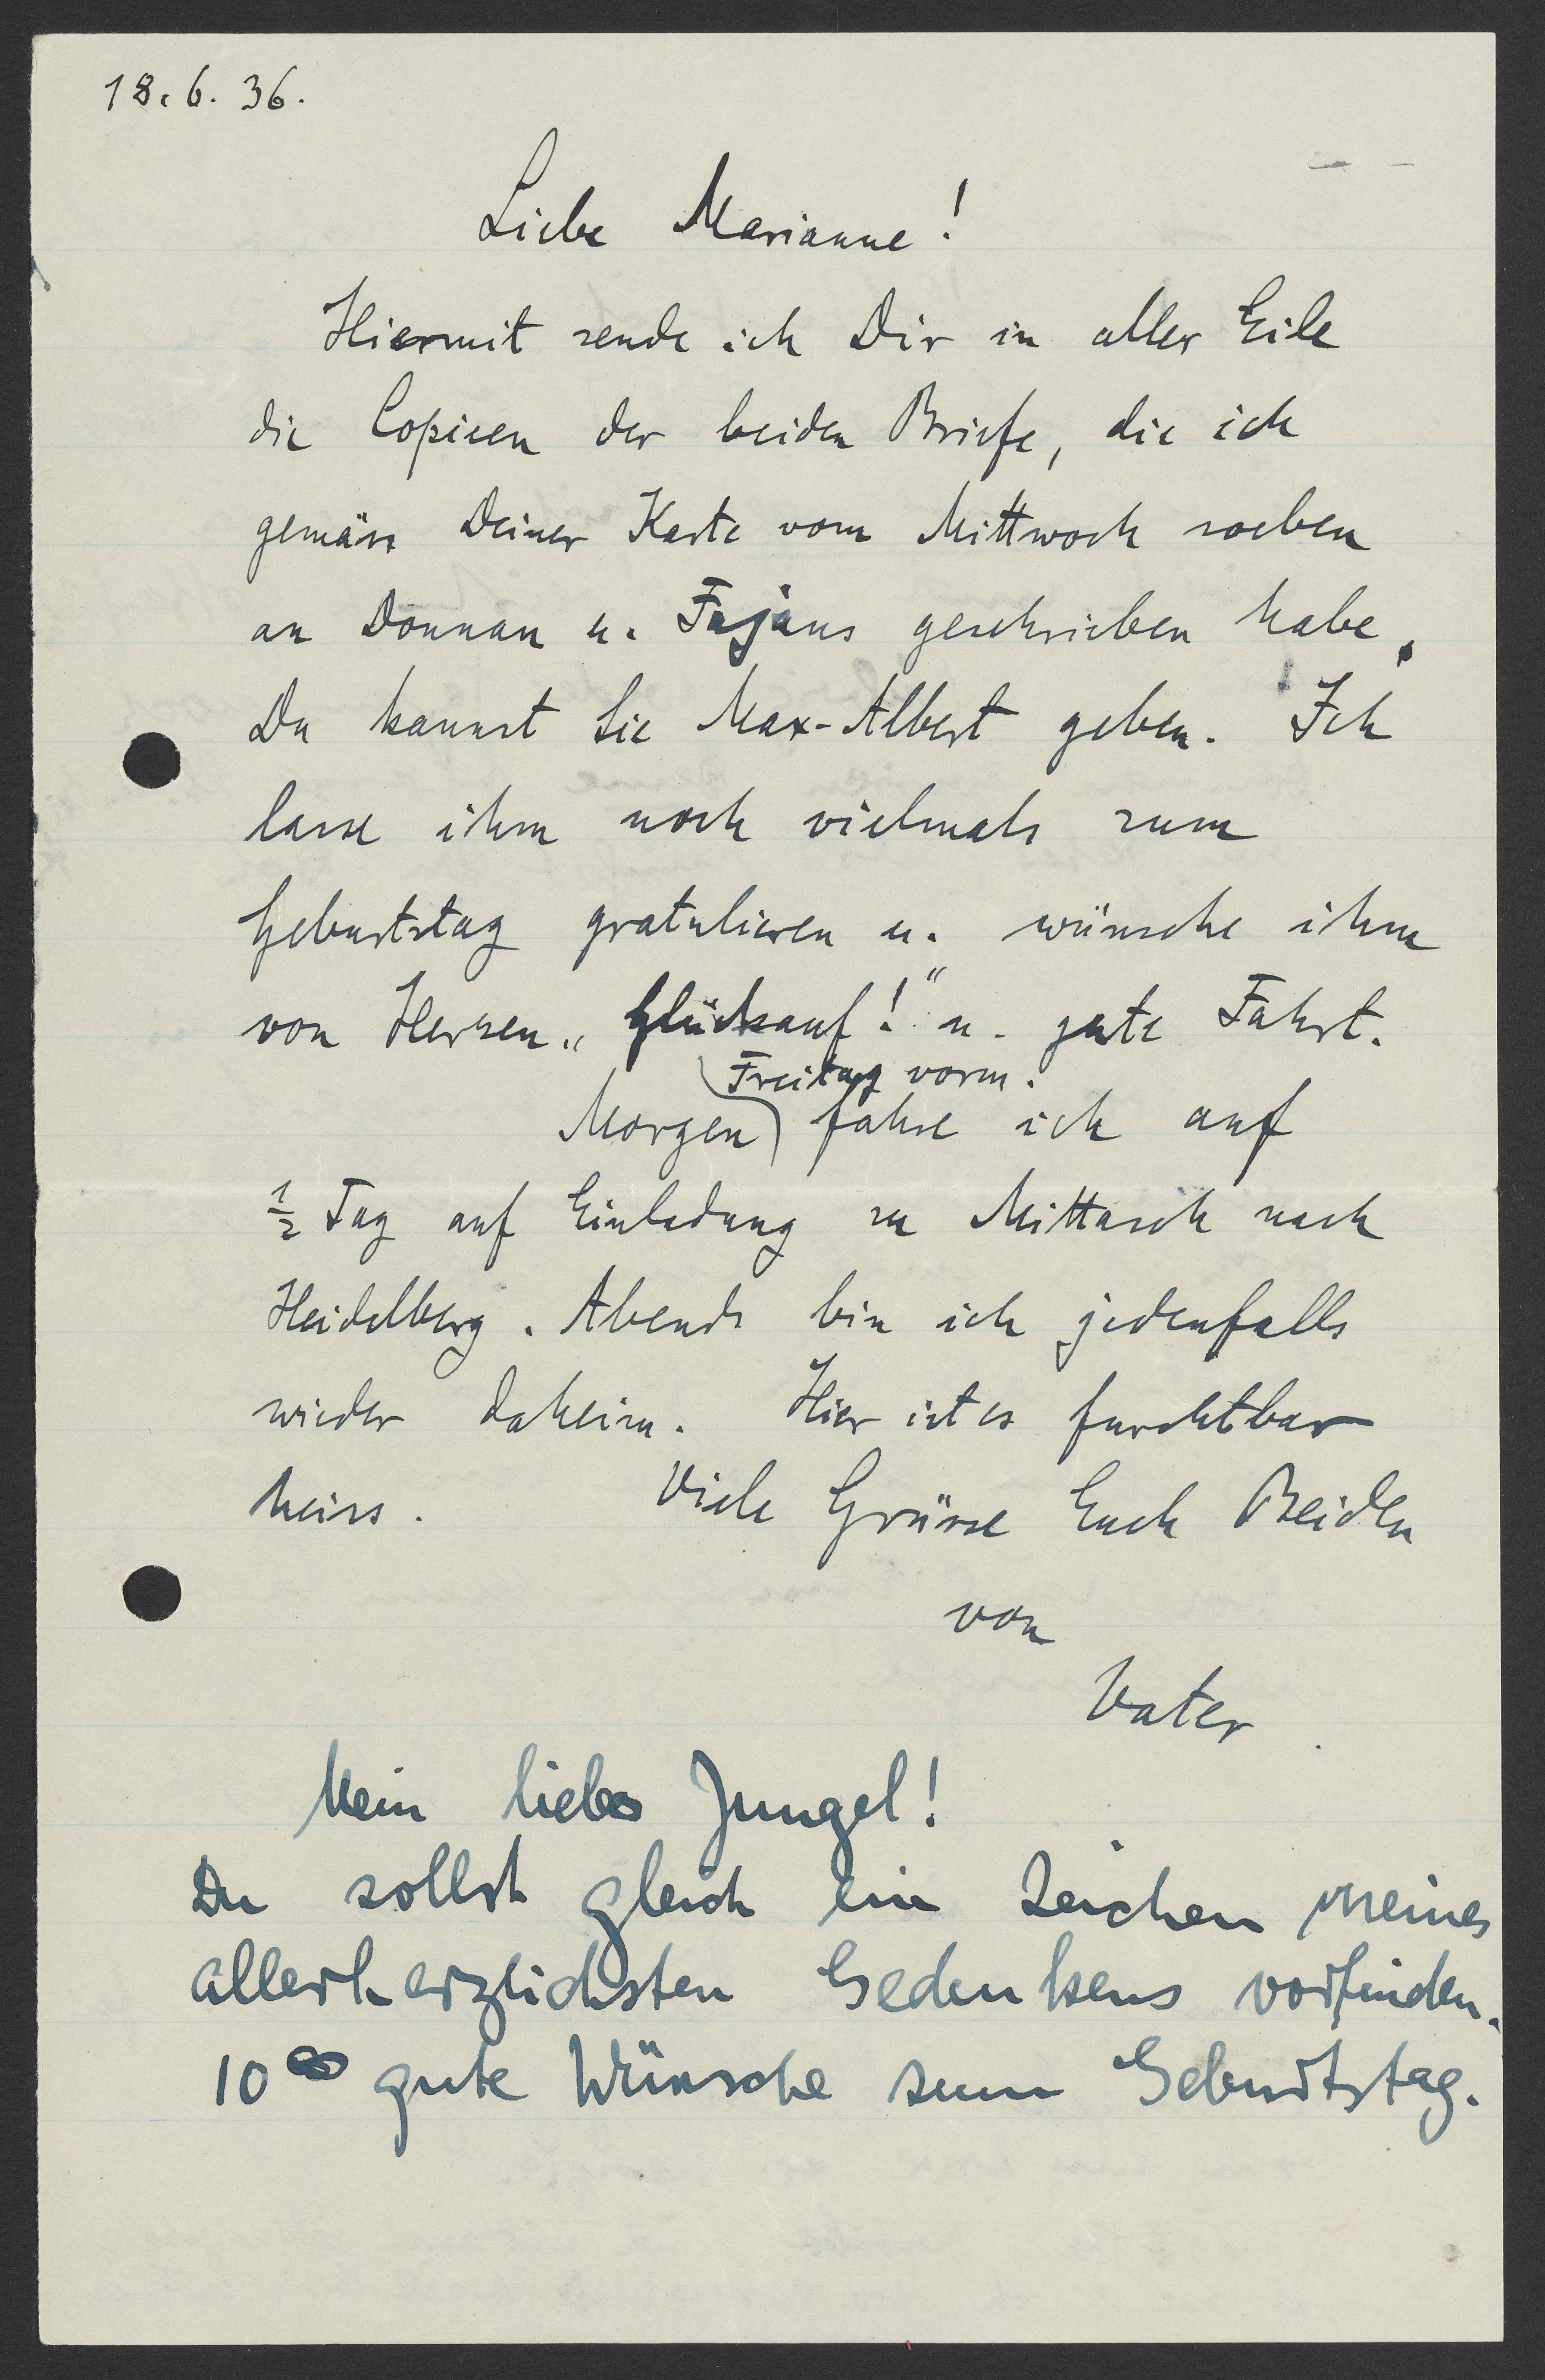 18.6.36.
Liebe Marianne!
Hiermit sende ich Dir in aller Eile
die Copieen der beiden Briefe, die ich
gemäss Deiner Karte vom Mittwoch soeben
an Donnan u. Fajans geschrieben habe.
Du kannst sie Max-Albert geben. Ich
lasse ihm noch vielmals zum
Geburtstag gratulieren u. wünsche ihm
von Herzen „Glückauf!“ u. gute Fahrt.
Freitag vorm.
Morgen fahre ich auf
½ Tag auf Einladung zu Mittasch nach
Heidelberg. Abends bin ich jedenfalls
wieder daheim. Hier ist es furchtbar
heiss. Viele Grüsse Euch Beiden
von
Vater.
Mein liebes Jungel!
Du sollst gleich ein Zeichen meines
allerherzlichsten Gedenkens vorfinden.
10 ∞ gute Wünsche zum Geburtstag.